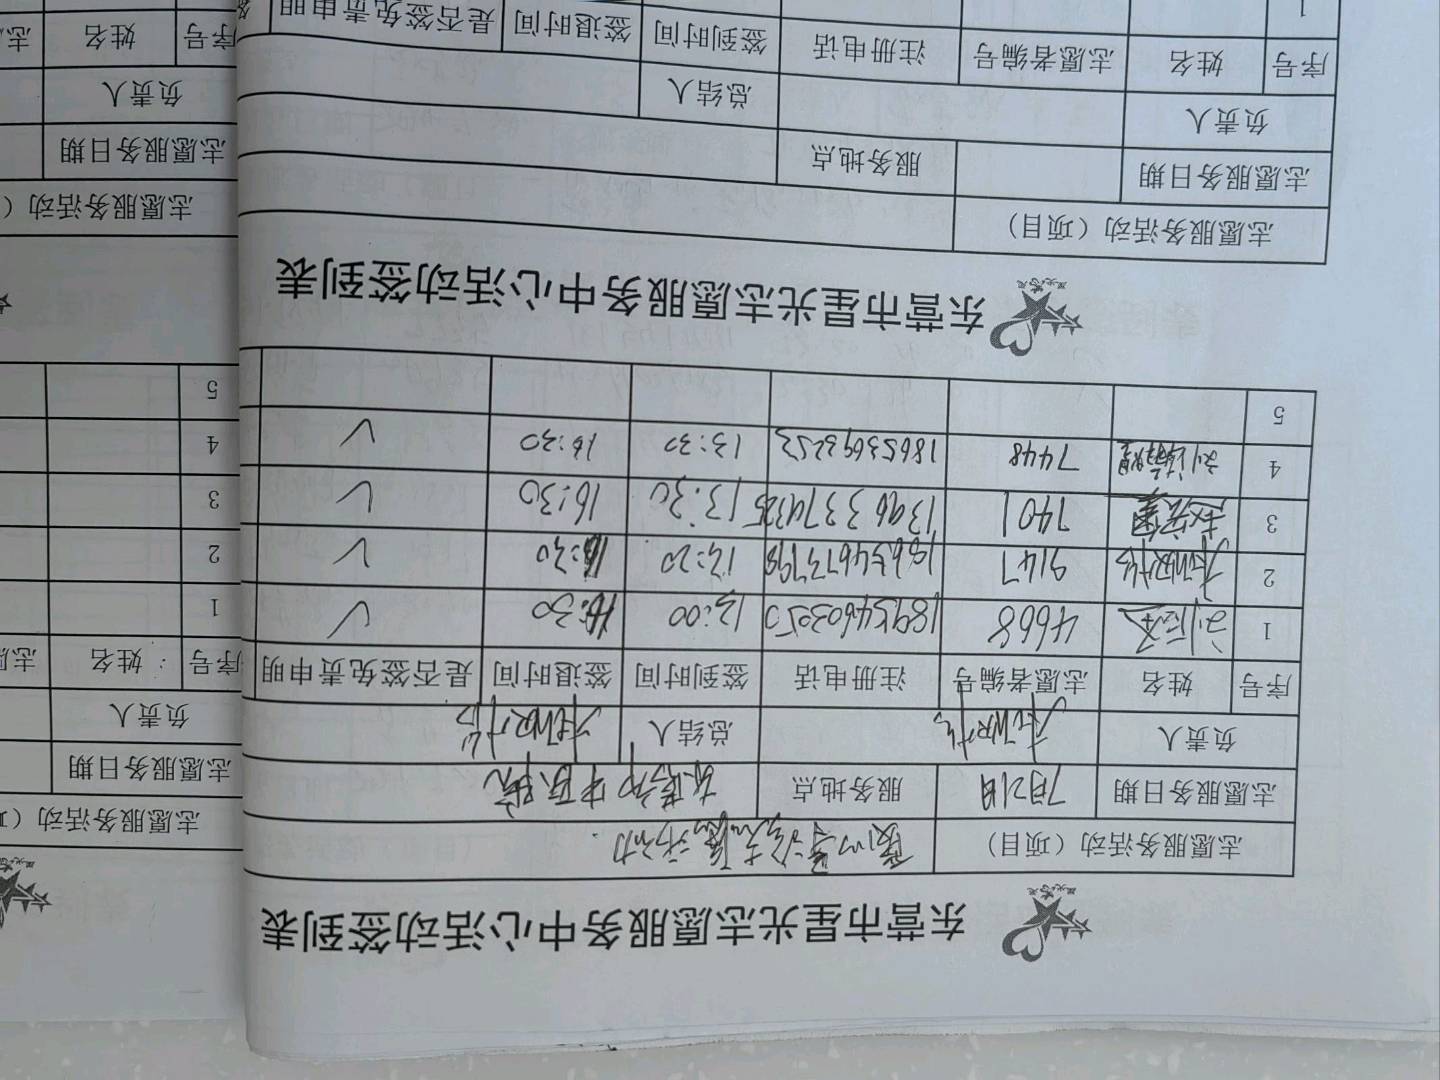 东营市星光志愿服务中心活动签到表
志愿服务活动（项目） 爱心导诊志愿活动.
志愿服务日期 7月21日 服务地点 东营市中医院
负责人 总结人
序号 姓名 志愿者编号 注册电话 签到时间 签退时间 是否签免责申明
1 4668 18954603050 13:00 16:30 ✓
2 9147 18654673798 13:20 16:30 ✓
3 7401 13963374325 13:30 16:30 ✓
4 7448 18653693253 13:30 16:30 ✓
5
东营市星光志愿服务中心活动签到表
志愿服务活动（项目）
志愿服务日期 服务地点
负责人 总结人
序号 姓名 志愿者编号 注册电话 签到时间 签退时间 是否签免责申明
1
志愿服务活动（
志愿服务日期
负责人
序号 姓名
1
2
3
4
5
志愿服务活动（
志愿服务日期
负责人
序号 姓名 志